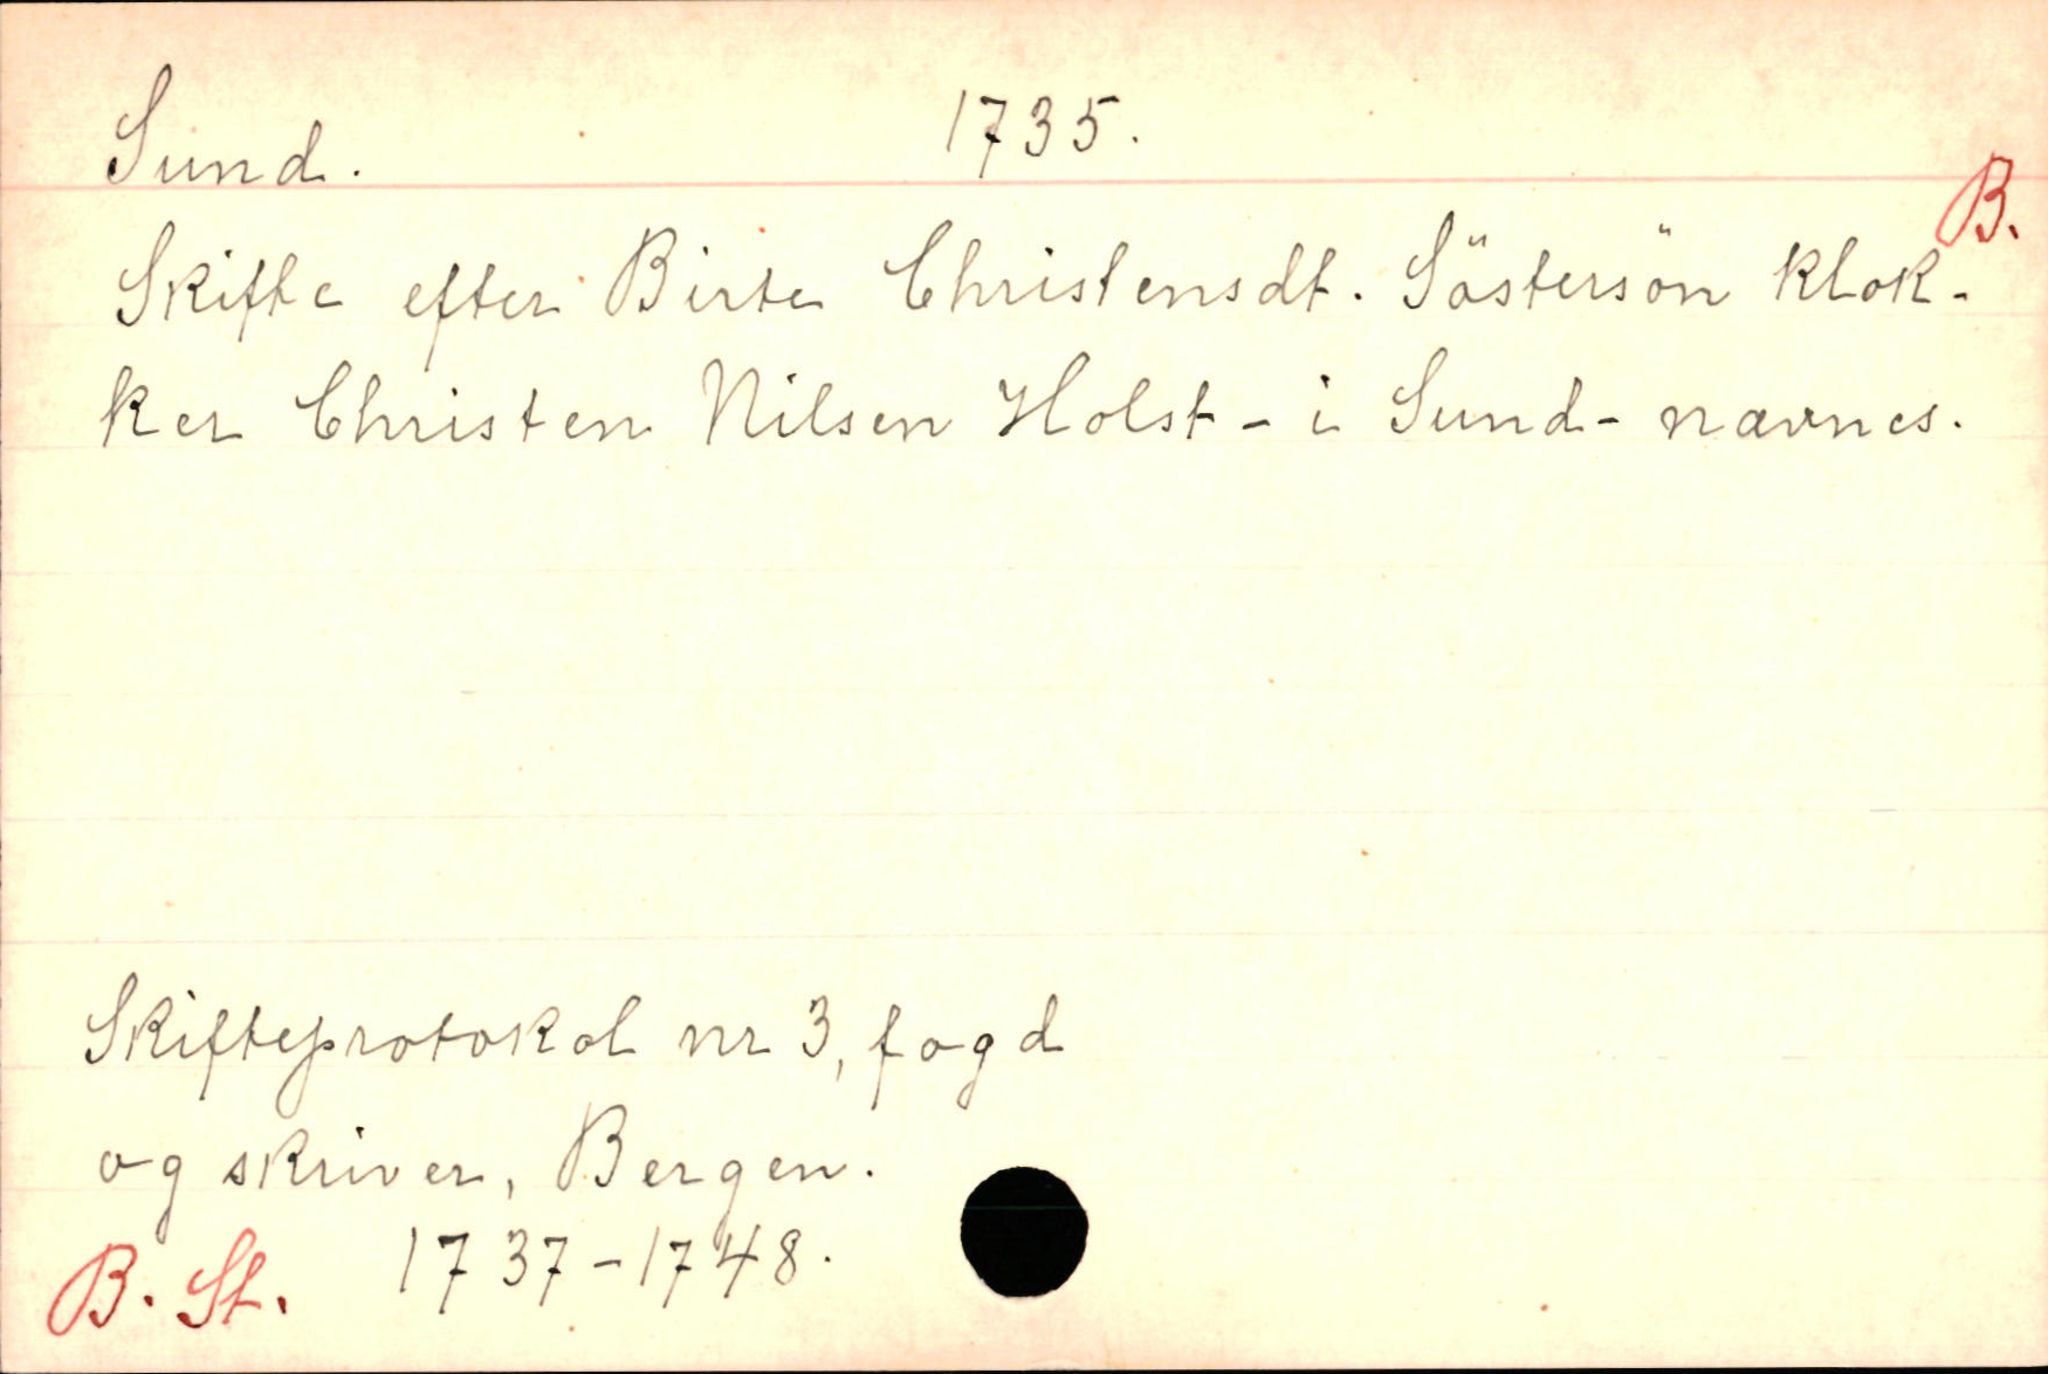 Sund. 1735.
B.
Skifte efter Birte Christensdt. Söstersön klok-
ker Christen Nilsen Holst - i Sund - nævnes.
Skifteprotokol nr 3, fogd
og skriver, Bergen.
B. St. 1737-1748.